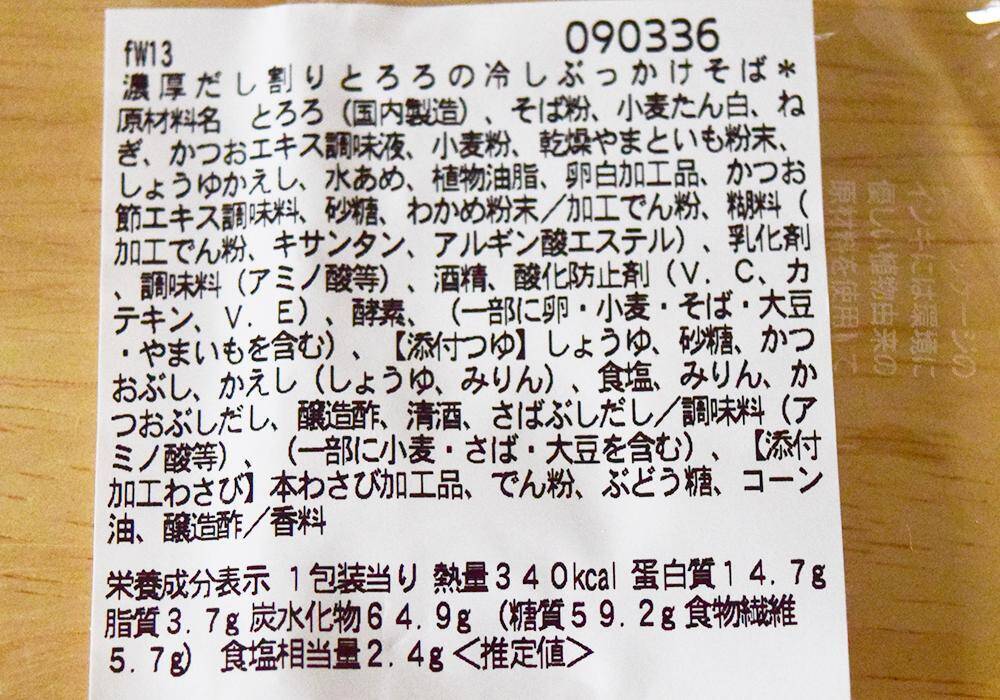 090336
fW13
濃厚だし割りとろろの冷しぶっかけそば*
原材料名　とろろ（国内製造）、そば粉、小麦たん白、ね
ぎ、かつおエキス調味液、小麦粉、乾燥やまといも粉末、
しょうゆかえし、水あめ、植物油脂、卵白加工品、かつお
節エキス調味料、砂糖、わかめ粉末／加工でん粉、糊料（
加工でん粉、キサンタン、アルギン酸エステル）、乳化剤
、調味料（アミノ酸等）、酒精、酸化防止剤（V．C、カ
テキン、V．E）、酵素、（一部に卵・小麦・そば・大豆
・やまいもを含む）、【添付つゆ】しょうゆ、砂糖、かつ
おぶし、かえし（しょうゆ、みりん）、食塩、みりん、か
つおぶしだし、醸造酢、清酒、さばぶしだし／調味料（ア
ミノ酸等）、（一部に小麦・さば・大豆を含む）、【添付
加工わさび】本わさび加工品、でん粉、ぶどう糖、コーン
油、醸造酢／香料
栄養成分表示 1包装当り 熱量340kcal 蛋白質14.7g
脂質3.7g 炭水化物64.9g（糖質59.2g 食物繊維
5.7g） 食塩相当量2.4g＜推定値＞